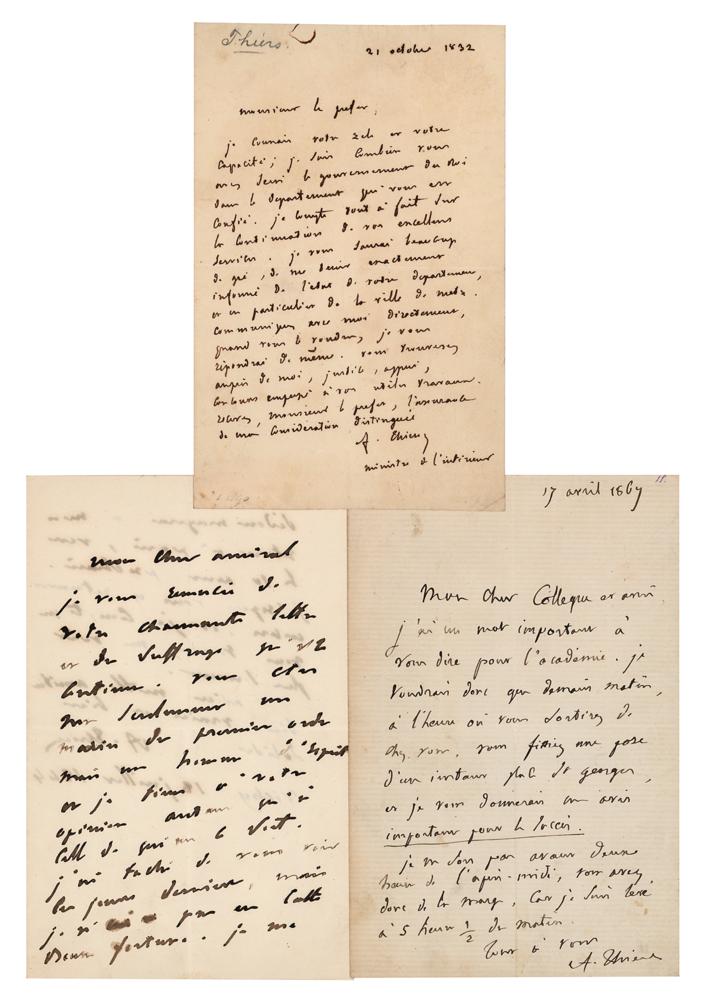 Thiers.
21 octobre 1832
monsieur le prefet,
je connais votre zele et votre
capacité; je sais combien vous
avez servi le gouvernement du Roi
dans le departement qui vous est
confié. je compte tout à fait sur
la continuation de vos excellens
services. je vous saurai beaucoup
de gré, de me tenir exactement
informé de l'etat de votre departement,
et en particulier de la ville de metz.
communiquez avec moi directement,
quand vous le voudrez, je vous
répondrai de même. vous trouverez
auprès de moi, justice, appui,
concours empressé à vos utiles travaux.
recevez, monsieur le prefet, l'assurance
de ma consideration distinguée
A. Thiers
ministre de l'intérieur
mon cher amiral
je vous remercie de
votre charmante lettre
et du suffrage qu'elle
contient. vous etes
non seulement un
marin de premier ordre
mais un homme d'esprit
et je tiens à votre
opinion autant qu'à
celle de qui que ce soit.
j'ai taché de vous voir
ces jours derniers, mais
je n'ai pas eu cette
bonne fortune. je me
18.
17 avril 1867
Mon cher Collegue et ami,
j'ai un mot important à
vous dire pour l'académie. je
voudrais donc que demain matin,
à l'heure où vous sortirez de
chez vous, vous fissiez une pose
d'un instant place St georges,
et je vous donnerais un avis
important pour le succès.
je ne sors pas avant deux
heures de l'après-midi, vous avez
donc de la marge, car je suis levé
à 5 heures 1/2 du matin.
tout à vous
A. Thiers